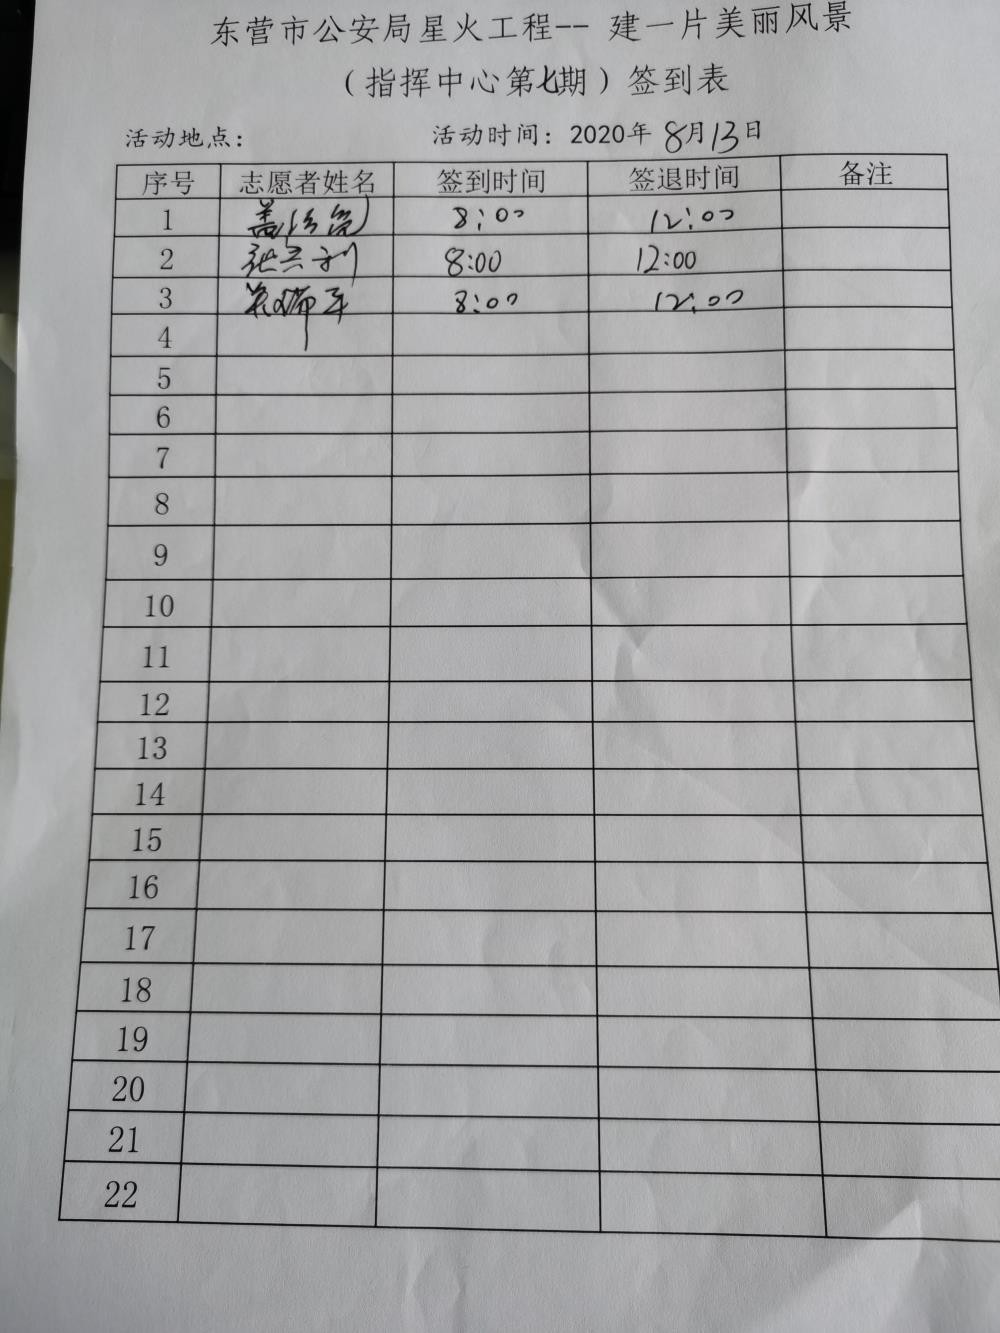 东营市公安局星火工程-- 建一片美丽风景
（指挥中心第七期）签到表
活动地点： 活动时间：2020年 8月13日
序号 志愿者姓名 签到时间 签退时间 备注
1 8:00 12:00
2 8:00 12:00
3 8:00 12:00
4
5
6
7
8
9
10
11
12
13
14
15
16
17
18
19
20
21
22